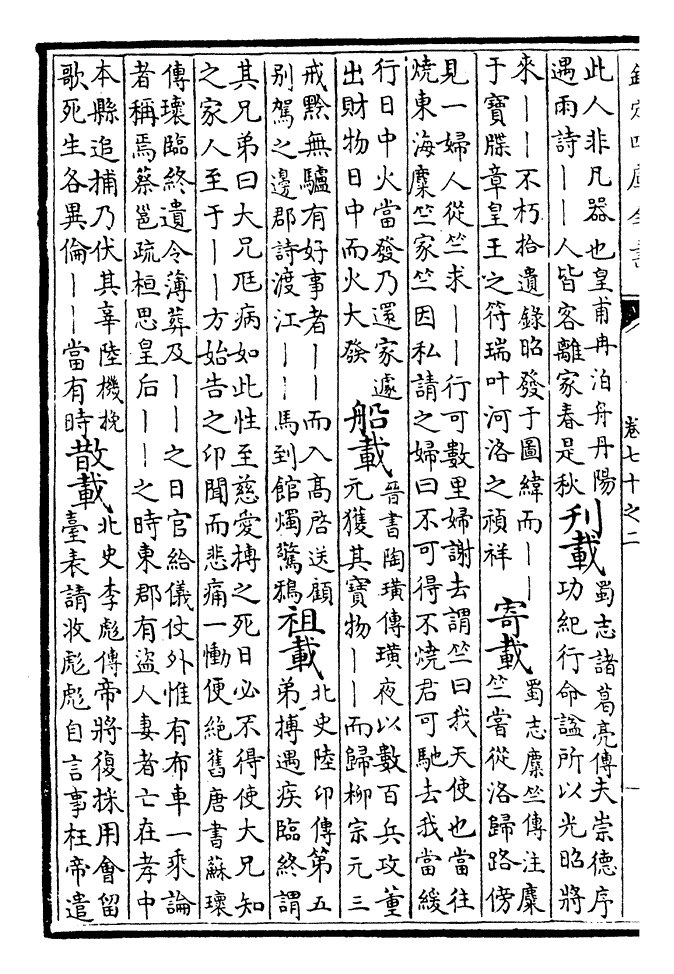 欽定四庫全書 卷七十之二
此人非凡器也皇甫冉泊舟丹陽
遇雨詩——人皆客離家春是秋
刋載
蜀志諸葛亮傳夫崇德序
功紀行命謚所以光昭將
來——不朽拾遺錄昭發于圖緯而——
于寶牒章皇王之符瑞叶河洛之禎祥
寄載
蜀志麋竺傳注麋
竺嘗從洛歸路傍
見一婦人從竺求——行可數里婦謝去謂竺曰我天使也當往
燒東海麋竺家竺因私請之婦曰不可得不燒君可馳去我當緩
行日中火當發乃還家遽
出財物日中而火大發
船載
晉書陶璜傳璜夜以數百兵攻董
元獲其寶物——而歸柳宗元三
戒黔無驢有好事者——而入高啓送顧
别駕之邊郡詩渡江——馬到館燭驚鴉
祖載
北史陸卬傳第五
弟搏遇疾臨終謂
其兄弟曰大兄尫病如此性至慈愛搏之死日必不得使大兄知
之家人至于——方始告之卬聞而悲痛一慟便絶舊唐書蘇瓌
傳瓌臨終遺令薄葬及——之日官給儀仗外惟有布車一乘論
者稱焉蔡邕疏桓思皇后——之時東郡有盜人妻者亡在孝中
本縣追捕乃伏其辜陸機挽
歌死生各異倫——當有時
散載
北史李彪傳帝將復採用會留
臺表請收彪彪自言事枉帝遣